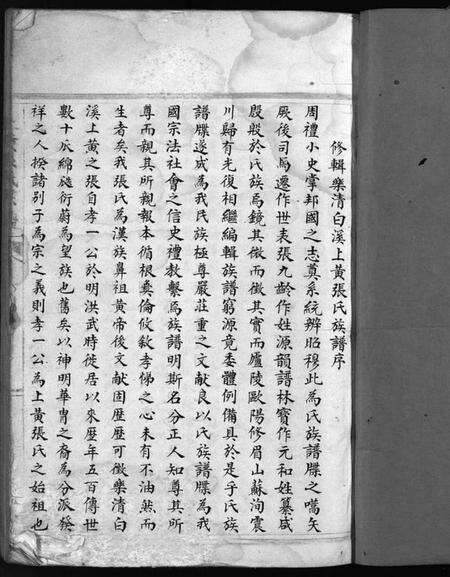 修輯樂清白溪上黃張氏族譜序
周禮小史掌邦國之志奠系統辨昭穆此為氏族譜牒之嚆矢
厥後司馬遷作世表張九齡作姓源韻譜林寶作元和姓纂咸
殷殷於氏族焉鏡其微而徵其實而廬陵歐陽修眉山蘇洵震
川歸有光復相繼編輯族譜窮源竟委體例備具於是乎氏族
譜牒遂成為我民族極尊嚴莊重之文獻良以氏族譜牒為我
國宗法社會之信史禮教繫焉族譜明斯名分正人知尊其所
尊而親其所親報本循根彜倫攸敘孝悌之心未有不油然而
生者矣我張氏為漢族鼻祖黃帝後文獻固歷歷可徵樂清白
溪上黃之張自孝一公於明洪武時徙居以來歷年五百傳世
數十瓜綿瓞衍蔚為望族也舊矣以神明華胄之裔為分派發
祥之人揆諸別子為宗之義則孝一公為上黃張氏之始祖也